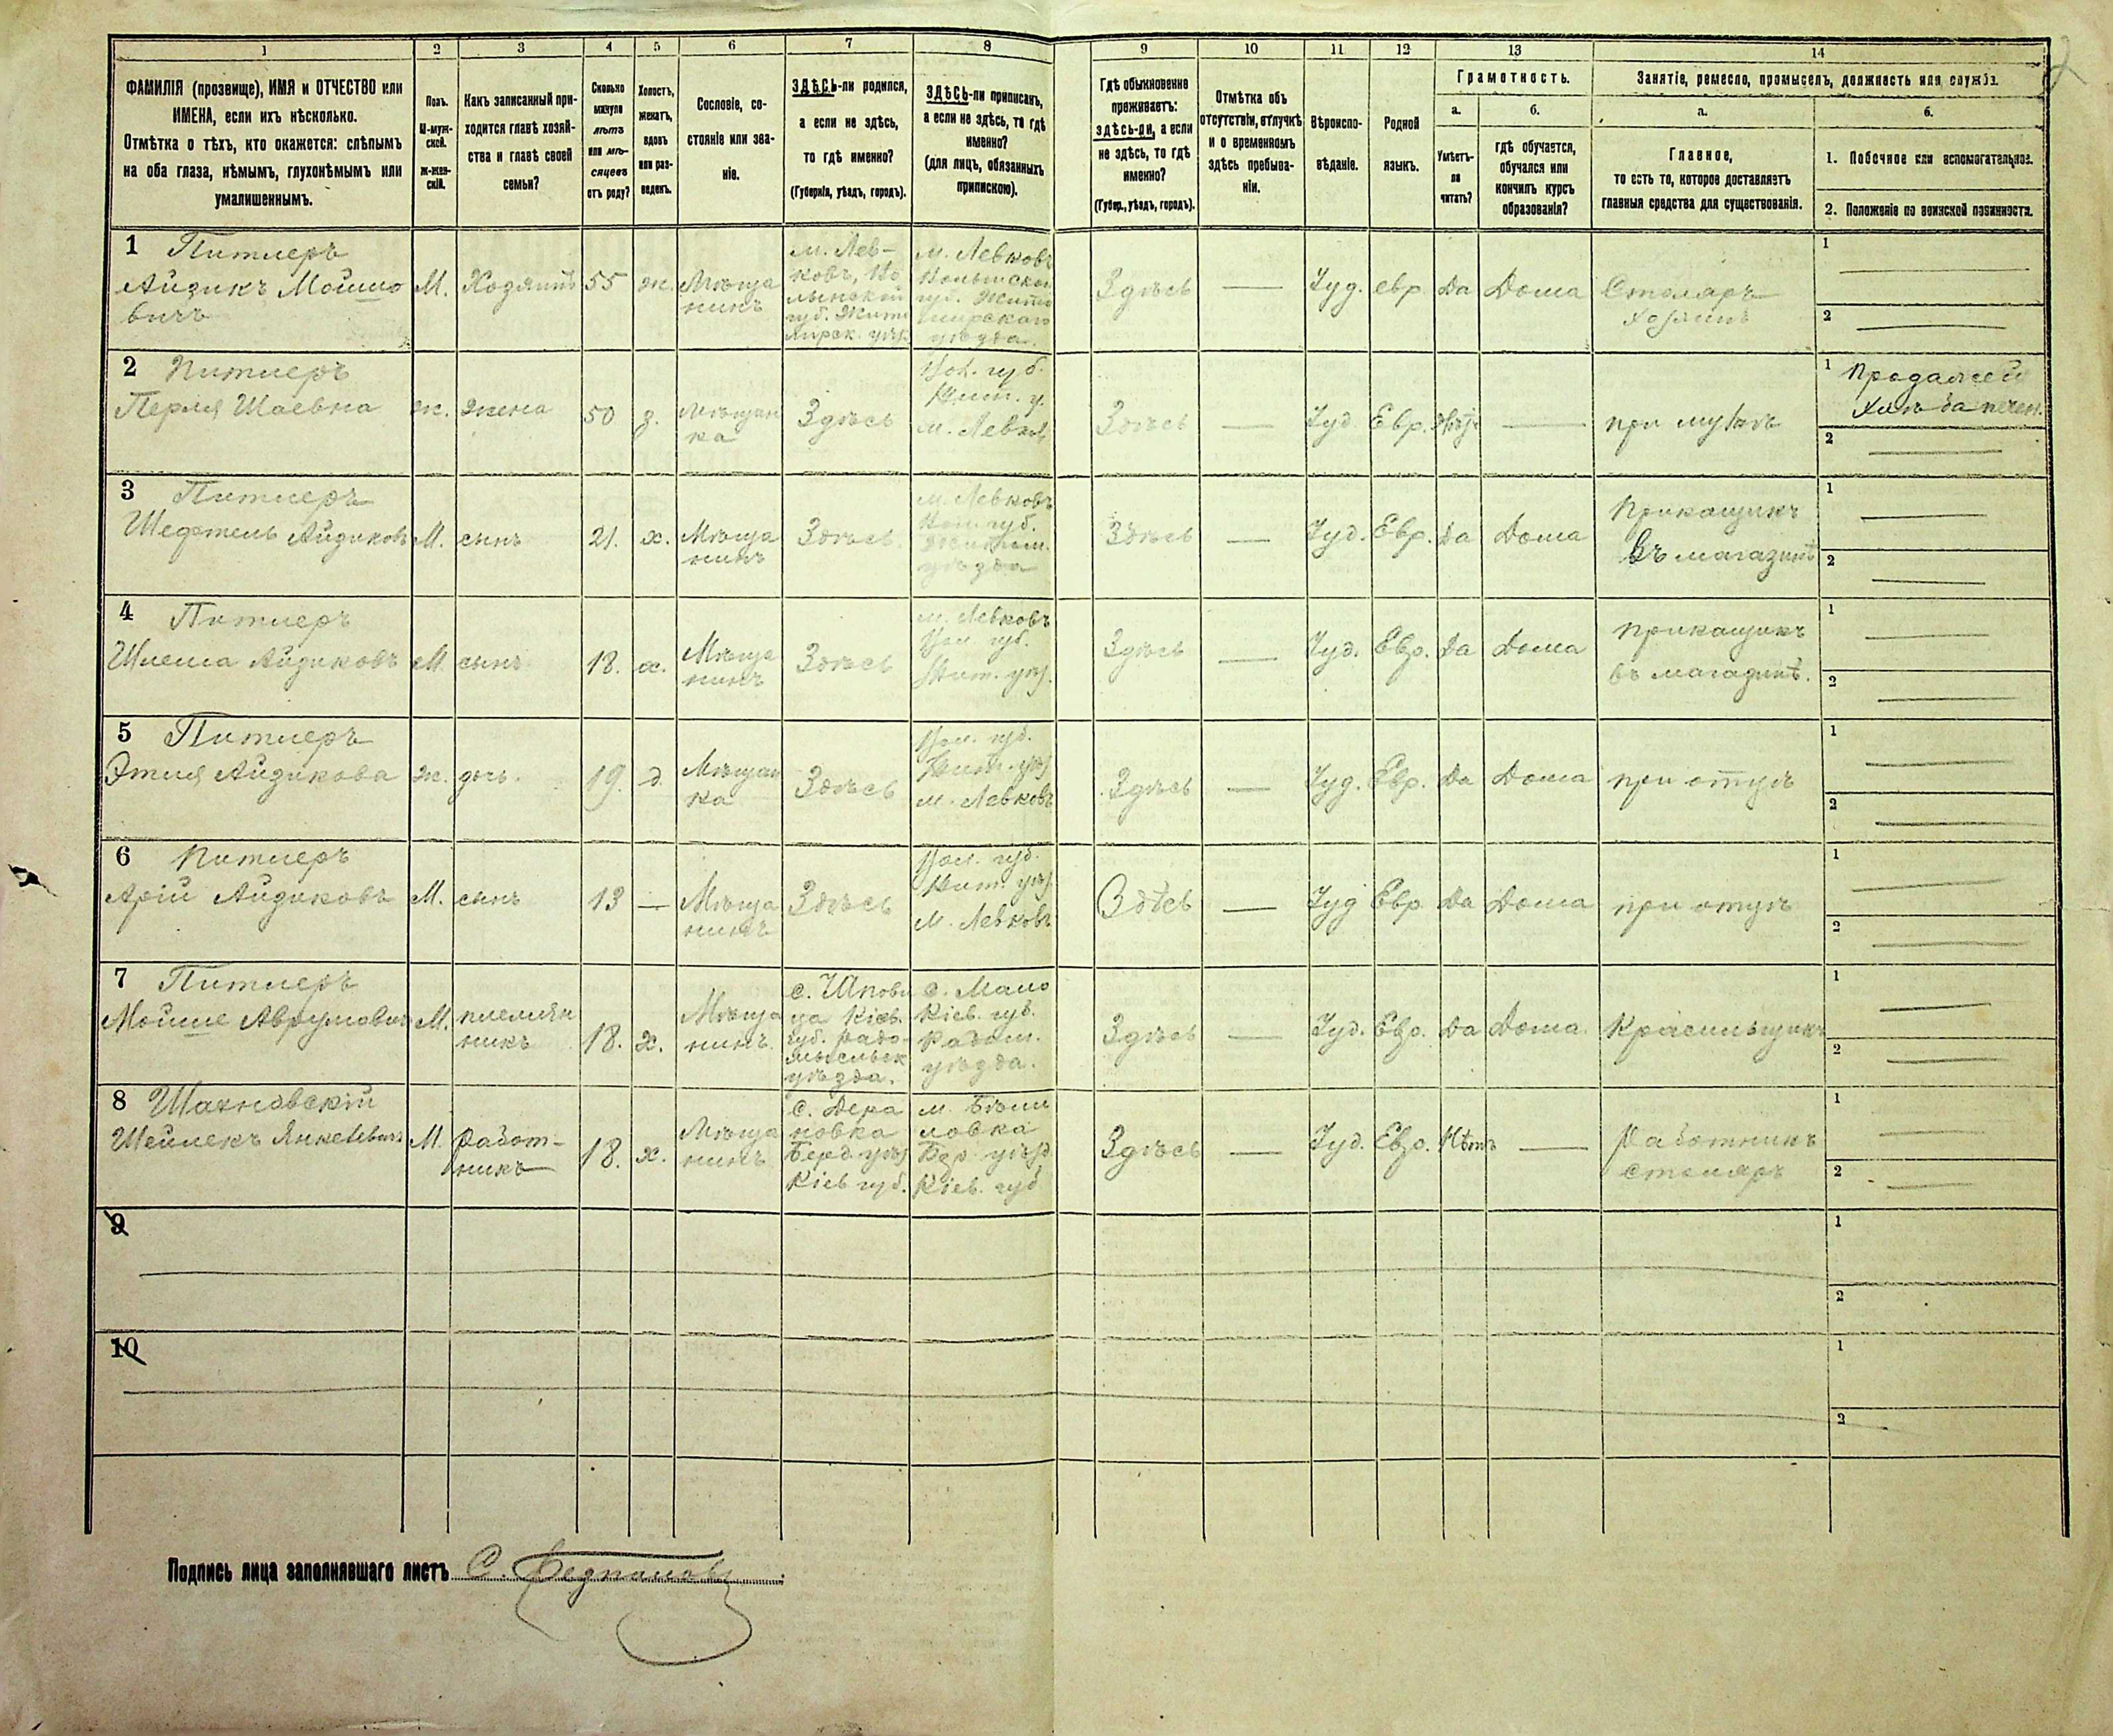 1 2 3 4 5 6 7 8 9 10 11 12 13 14
ФАМИЛІЯ (прозвище), ИМЯ и ОТЧЕСТВО или
ИМЕНА, если ихъ нѣсколько.
Отмѣтка о тѣхъ, кто окажется: слѣпымъ
на оба глаза, нѣмымъ, глухонѣмымъ или
умалишеннымъ.
Полъ.
М-муж-
ской.
ж-жен-
скій.
Какъ записанный при-
ходится главѣ хозяй-
ства и главѣ своей
семьи?
Сколько
минуло
лѣтъ
или мѣ-
сяцевъ
отъ роду?
Холостъ,
женатъ,
вдовъ
или раз-
веденъ.
Сословіе, со-
стояніе или зва-
ніе.
ЗДѢСЬ-ли родился,
а если не здѣсь,
то гдѣ именно?
(Губернія, уѣздъ, городъ).
ЗДѢСЬ-ли приписанъ,
а если не здѣсь, то гдѣ
именно?
(для лицъ, обязанныхъ
припискою).
Гдѣ обыкновенно
проживаетъ:
здѣсь-ли, а если
не здѣсь, то гдѣ
именно?
(Губер., уѣздъ, городъ).
Отмѣтка объ
отсутствіи, отлучкѣ
и о временномъ
здѣсь пребыва-
ніи.
Вѣроиспо-
вѣданіе.
Родной
языкъ.
Грамотность.
а.
Умѣетъ-
ли
читать?
б.
гдѣ обучается,
обучался или
кончилъ курсъ
образованія?
Занятіе, ремесло, промыселъ, должность или служба.
а.
Главное,
то есть то, которое доставляетъ
главныя средства для существованія.
б.
1. Побочное или вспомогательное.
2. Положеніе по воинской повинности.
1 Питлеръ
Айзикъ Мошко
вичъ
М.
Хозяинъ
55
ж.
Мѣща
нинъ
м. Лев-
ковъ, Во
лынской
губ. Жито
мирск. уѣз.
м. Левковъ
Волынской
губ. Жито
мирскаго
уѣзда.
Здѣсь
Іуд.
евр
да
Дома
Столяръ
хозяинъ
1
2
2 Питлеръ
Перля Шаевна
ж.
жена
50
з.
Мѣщан
ка
Здѣсь
Вол. губ.
Жит. у.
м. Левковъ
Здѣсь
Іуд.
Евр.
при мужѣ
1 Продажей
2
3 Питлеръ
Шефтель Айзиковъ
М.
сынъ
21.
х.
Мѣща
нинъ
Здѣсь.
м. Левковъ
Вол. губ.
Житом.
уѣзда
Здѣсь
Іуд.
Евр.
да
Дома
Прикащикъ
въ магазинѣ
1
2
4 Питлеръ
Шлема Айзиковъ
М.
сынъ
18.
х.
Мѣща
нинъ
Здѣсь
м. Левковъ
Вол. губ.
Жит. уѣз.
Здѣсь
Іуд.
Евр.
да
Дома
прикащикъ
въ магазинѣ.
1
2
5 Питлеръ
Этля Айзикова
ж.
дочь.
19.
д.
Мѣщан
ка
Здѣсь
Вол. губ.
Жит. уѣз
м. Левковъ
Здѣсь
Іуд.
Евр.
да
Дома
при отцѣ
1
2
6 Питлеръ
Арій Айзиковъ
М.
сынъ
13
Мѣща
нинъ
Здѣсь
Вол. губ.
Жит. уѣз.
м. Левковъ
Здѣсь
Іуд
Евр
да
Дома
при отцѣ
1
2
7 Питлеръ
Мойше Аврумович
М.
племян
никъ
18.
х.
Мѣща
нинъ
Кіев.
губ. Радо-
мысльск
уѣзда.
с. Мало
Кіев. губ.
Радом.
уѣзда.
Здѣсь
Іуд.
Евр.
да
Дома.
Красильщикъ
1
2
8 Шахновскій
Шейлекъ Янкелевичъ
М.
работ-
никъ
18.
х.
Мѣща
нинъ
Берд. уѣз
Кіев губ.
м. Бѣли
ловка
Бер. уѣзд
Кіев. губ
Здѣсь
Іуд.
Евр.
Нѣтъ
Работникъ
столяръ
1
2
9
1
2
10
1
2
Подпись лица заполнявшаго листъ С.